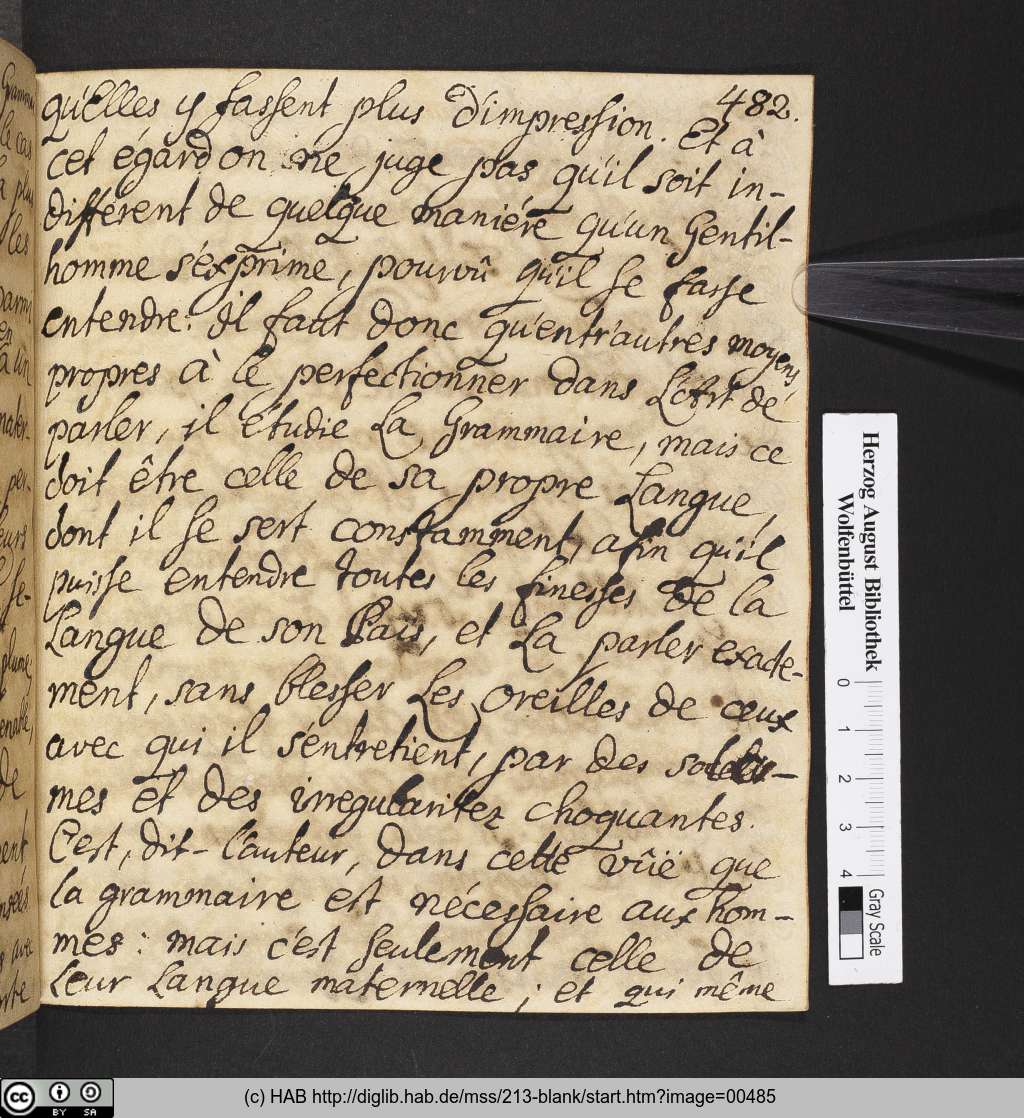 482.
qu'elles y fassent plus d'impression. Et à
cet égard on ne juge pas qu'il soit in-
différent de quelque maniére qu'un Gentil-
homme s'éxprime, pourvû qu'il se fasse
entendre. Il faut donc qu'entr'autres moyens
propres à le perfectionner dans L'Art de
parler, il étudie La Grammaire, mais ce
doit être celle de sa propre Langue,
dont il se sert constamment, afin qu'il
puisse entendre toutes les finesses de la
Langue de son Païs, et La parler exacte-
ment, sans blesser Les oreilles de ceux
avec qui il s'entretient, par des solécis-
mes et des irregularitez choquantes.
C'est, dit-l'auteur, dans cette vûë que
la grammaire est nécessaire aux hom-
mes: mais c'est seulement celle de
Leur Langue maternelle; et qui même
Herzog August Bibliothek
Wolfenbüttel
0 1 2 3 4
Gray Scale
(c) HAB http://diglib.hab.de/mss/213-blank/start.htm?image=00485
CC BY SA